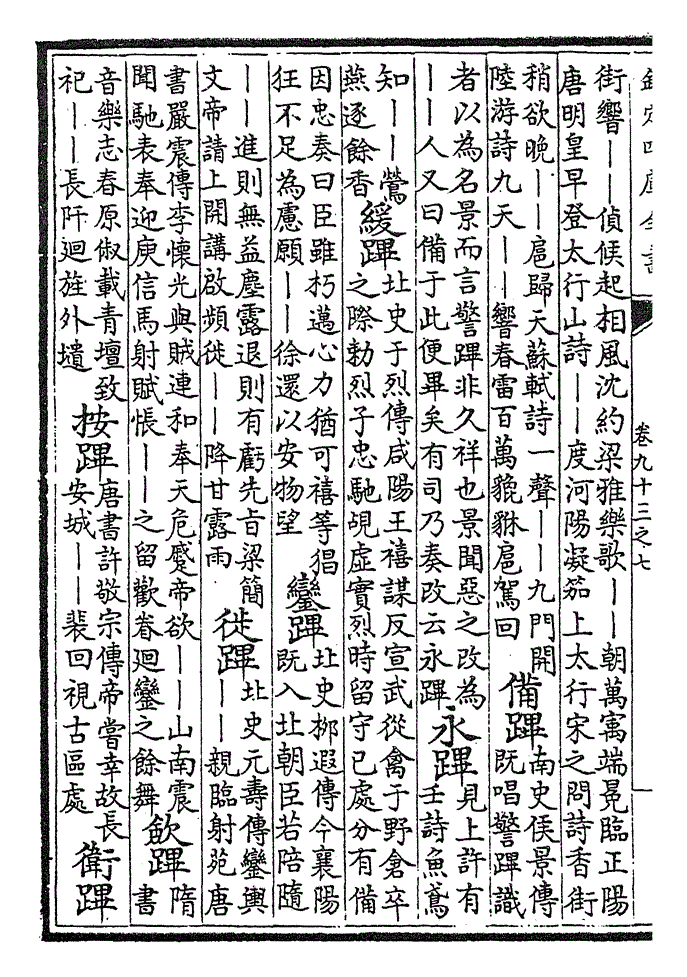 欽定四庫全書
卷九十三之七
街響――偵候起相風沈約梁雅樂歌――朝萬㝢端冕臨正陽
唐明皇早登太行山詩――度河陽凝笳上太行宋之問詩香街
稍欲晚――扈歸天蘇軾詩一聲――九門開
陸游詩九天――響春雷百萬貔貅扈駕回
備蹕
南史侯景傳
既唱警蹕識
者以為名景而言警蹕非久祥也景聞惡之改為
――人又曰備于此便畢矣有司乃奏改云永蹕
永蹕
見上許有
壬詩魚鳶
知――鶯
燕逐餘香
緩蹕
北史于烈傳咸陽王禧謀反宣武從禽于野倉卒
之際勅烈子忠馳覘虛實烈時留守已處分有備
因忠奏曰臣雖朽邁心力猶可禧等猖
狂不足為慮願――徐還以安物望
鑾蹕
北史栁遐傳今襄陽
既入北朝臣若陪隨
――進則無益塵露退則有虧先旨梁簡
文帝請上開講啟頻徙――降甘露雨
徙蹕
北史元壽傳鑾輿
――親臨射苑唐
書嚴震傳李懷光與賊連和奉天危蹙帝欲――山南震
聞馳表奉迎庾信馬射賦悵――之留歡眷廻鑾之餘舞
歛蹕
隋
書
音樂志春原俶載青壇致
祀――長阡廻旌外壝
按蹕
唐書許敬宗傳帝嘗幸故長
安城――裴回視古區處
衛蹕